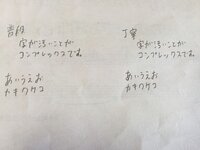 普段
字が汚いことが
コンプレックスです。
あいうえお
カキクケコ
丁寧
字が汚いことが
コンプレックスです。
あいうえお
カキクケコ